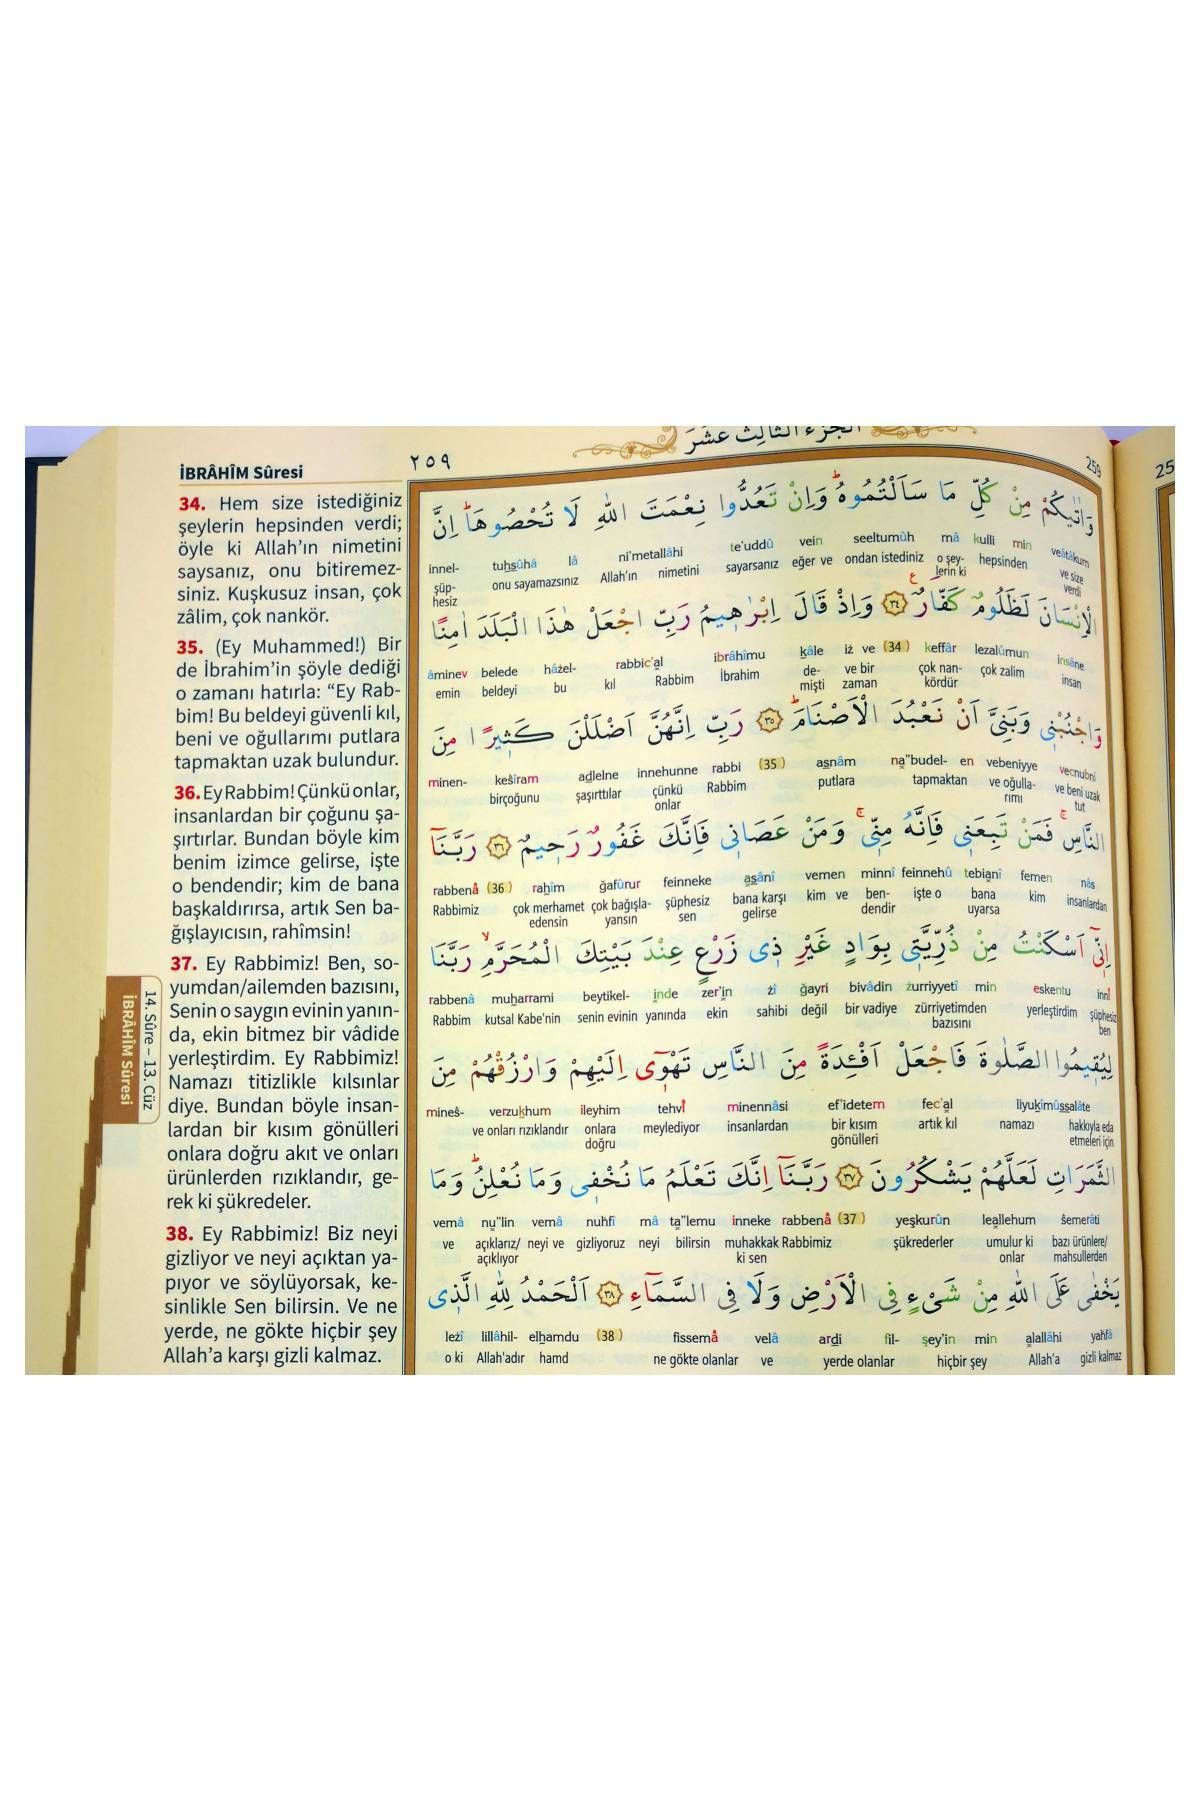 الجزء الثالث عشر
İBRÂHÎM Sûresi
٢٥٩
259
34. Hem size istediğiniz
şeylerin hepsinden verdi;
öyle ki Allah’ın nimetini
saysanız, onu bitiremez-
siniz. Kuşkusuz insan, çok
zâlim, çok nankör.
35. (Ey Muhammed!) Bir
de İbrahim’in şöyle dediği
o zamanı hatırla: “Ey Rab-
bim! Bu beldeyi güvenli kıl,
beni ve oğullarımı putlara
tapmaktan uzak bulundur.
36. Ey Rabbim! Çünkü onlar,
insanlardan bir çoğunu şa-
şırtırlar. Bundan böyle kim
benim izimce gelirse, işte
o bendendir; kim de bana
başkaldırırsa, artık Sen ba-
ğışlayıcısın, rahîmsin!
37. Ey Rabbimiz! Ben, so-
yumdan/ailemden bazısını,
Senin o saygın evinin yanın-
da, ekin bitmez bir vâdide
yerleştirdim. Ey Rabbimiz!
Namazı titizlikle kılsınlar
diye. Bundan böyle insan-
lardan bir kısım gönülleri
onlara doğru akıt ve onları
ürünlerden rızıklandır, ge-
rek ki şükredeler.
38. Ey Rabbimiz! Biz neyi
gizliyor ve neyi açıktan ya-
pıyor ve söylüyorsak, ke-
sinlikle Sen bilirsin. Ve ne
yerde, ne gökte hiçbir şey
Allah’a karşı gizli kalmaz.
14. Sûre – 13. Cüz
İBRÂHÎM Sûresi
وَاٰتٰيكُمْ مِنْ كُلِّ مَا سَاَلْتُمُوهُۜ وَاِنْ تَعُدُّوا نِعْمَتَ اللّٰهِ لَا تُحْصُوهَاۜ اِنَّ
innel- tuhsûhâ lâ ni’metallâhi te’uddû vein seeltumûh mâ kulli min veâtâkum
şüp- onu sayamazsınız Allah’ın nimetini sayarsanız eğer ve ondan istediniz o şey- hepsinden ve size
hesiz lerin ki verdi
الْاِنْسَانَ لَظَلُومٌ كَفَّارٌ۟ ﴿٣٤﴾ وَاِذْ قَالَ اِبْرٰه۪يمُ رَبِّ اجْعَلْ هٰذَا الْبَلَدَ اٰمِنًا
âminev belede hâzel- rabbic’al ibrâhîmu kâle iż ve (34) keffâr lezalûmun insâne
emin beldeyi bu kıl Rabbim İbrahim de- ve bir çok nan- çok zalim insan
mişti zaman kördür
وَاجْنُبْن۪ي وَبَنِيَّ اَنْ نَعْبُدَ الْاَصْنَامَۜ ﴿٣٥﴾ رَبِّ اِنَّهُنَّ اَضْلَلْنَ كَث۪يرًا مِنَ
minen- keśîram adlelne innehunne rabbi (35) asnâm na’’budel- en vebeniyye vecnubnî
birçoğunu şaşırttılar çünkü Rabbim putlara tapmaktan ve oğulla- ve beni uzak
onlar rımı tut
النَّاسِۚ فَمَنْ تَبِعَن۪ي فَاِنَّهُ مِنّ۪يۚ وَمَنْ عَصَان۪ي فَاِنَّكَ غَفُورٌ رَح۪يمٌ ﴿٣٦﴾ رَبَّنَٓا
rabbenâ (36) rahîm ğafûrur feinneke asânî vemen minnî feinnehû tebianî femen nâs
Rabbimiz çok merhamet çok bağışla- şüphesiz bana karşı kim ve ben- işte o bana kim insanlardan
edensin yansın sen gelirse dendir uyarsa
اِنّ۪ٓي اَسْكَنْتُ مِنْ ذُرِّيَّت۪ي بِوَادٍ غَيْرِ ذ۪ي زَرْعٍ عِنْدَ بَيْتِكَ الْمُحَرَّمِۙ رَبَّنَا
rabbenâ muharrami beytikel- inde zer’in żî ğayri bivâdin żurriyyetî min eskentu innî
Rabbim kutsal Kabe’nin senin evinin yanında ekin sahibi değil bir vadiye zürriyetimden yerleştirdim şüphesiz
bazısını ben
لِيُق۪يمُوا الصَّلٰوةَ فَاجْعَلْ اَفْئِدَةً مِنَ النَّاسِ تَهْو۪ٓي اِلَيْهِمْ وَارْزُقْهُمْ مِنَ
mineś- verzukhum ileyhim tehvî minennâsi ef’idetem fec’al liyukîmûssalâte
ve onları rızıklandır onlara meylediyor insanlardan bir kısım artık kıl namazı hakkıyla eda
doğru gönülleri etmeleri için
الثَّمَرَاتِ لَعَلَّهُمْ يَشْكُرُونَ ﴿٣٧﴾ رَبَّنَٓا اِنَّكَ تَعْلَمُ مَا نُخْف۪ي وَمَا نُعْلِنُۜ وَمَا
vemâ nu’’lin vemâ nuhfî mâ ta’’lemu inneke rabbenâ (37) yeşkurûn leallehum śemerâti
ve açıklarız/ neyi ve gizliyoruz neyi bilirsin muhakkak Rabbimiz şükrederler umulur ki bazı ürünlere/
açıklıyor ki sen onlar mahsullerden
يَخْفٰى عَلَى اللّٰهِ مِنْ شَيْءٍ فِي الْاَرْضِ وَلَا فِي السَّمَٓاءِ ﴿٣٨﴾ اَلْحَمْدُ لِلّٰهِ الَّذ۪ي
leżî lillâhil- elhamdu (38) fissemâ velâ ardi fil- şey’in min alallâhi yahfâ
o ki Allah’adır hamd ne gökte olanlar ve yerde olanlar hiçbir şey Allah’a gizli kalmaz
25